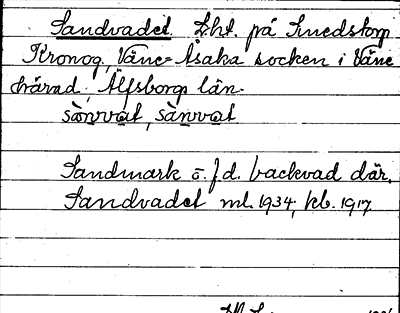 Sandvadet. Lht. på Smedstorp
Kronog, Väne-Åsaka socken i Väne
härad, Älfsborgs län.
sàn̥vat, sàn̥vat
Sandmark o. f.d. backvad där.
Sandvadet ml. 1934, kb. 1917